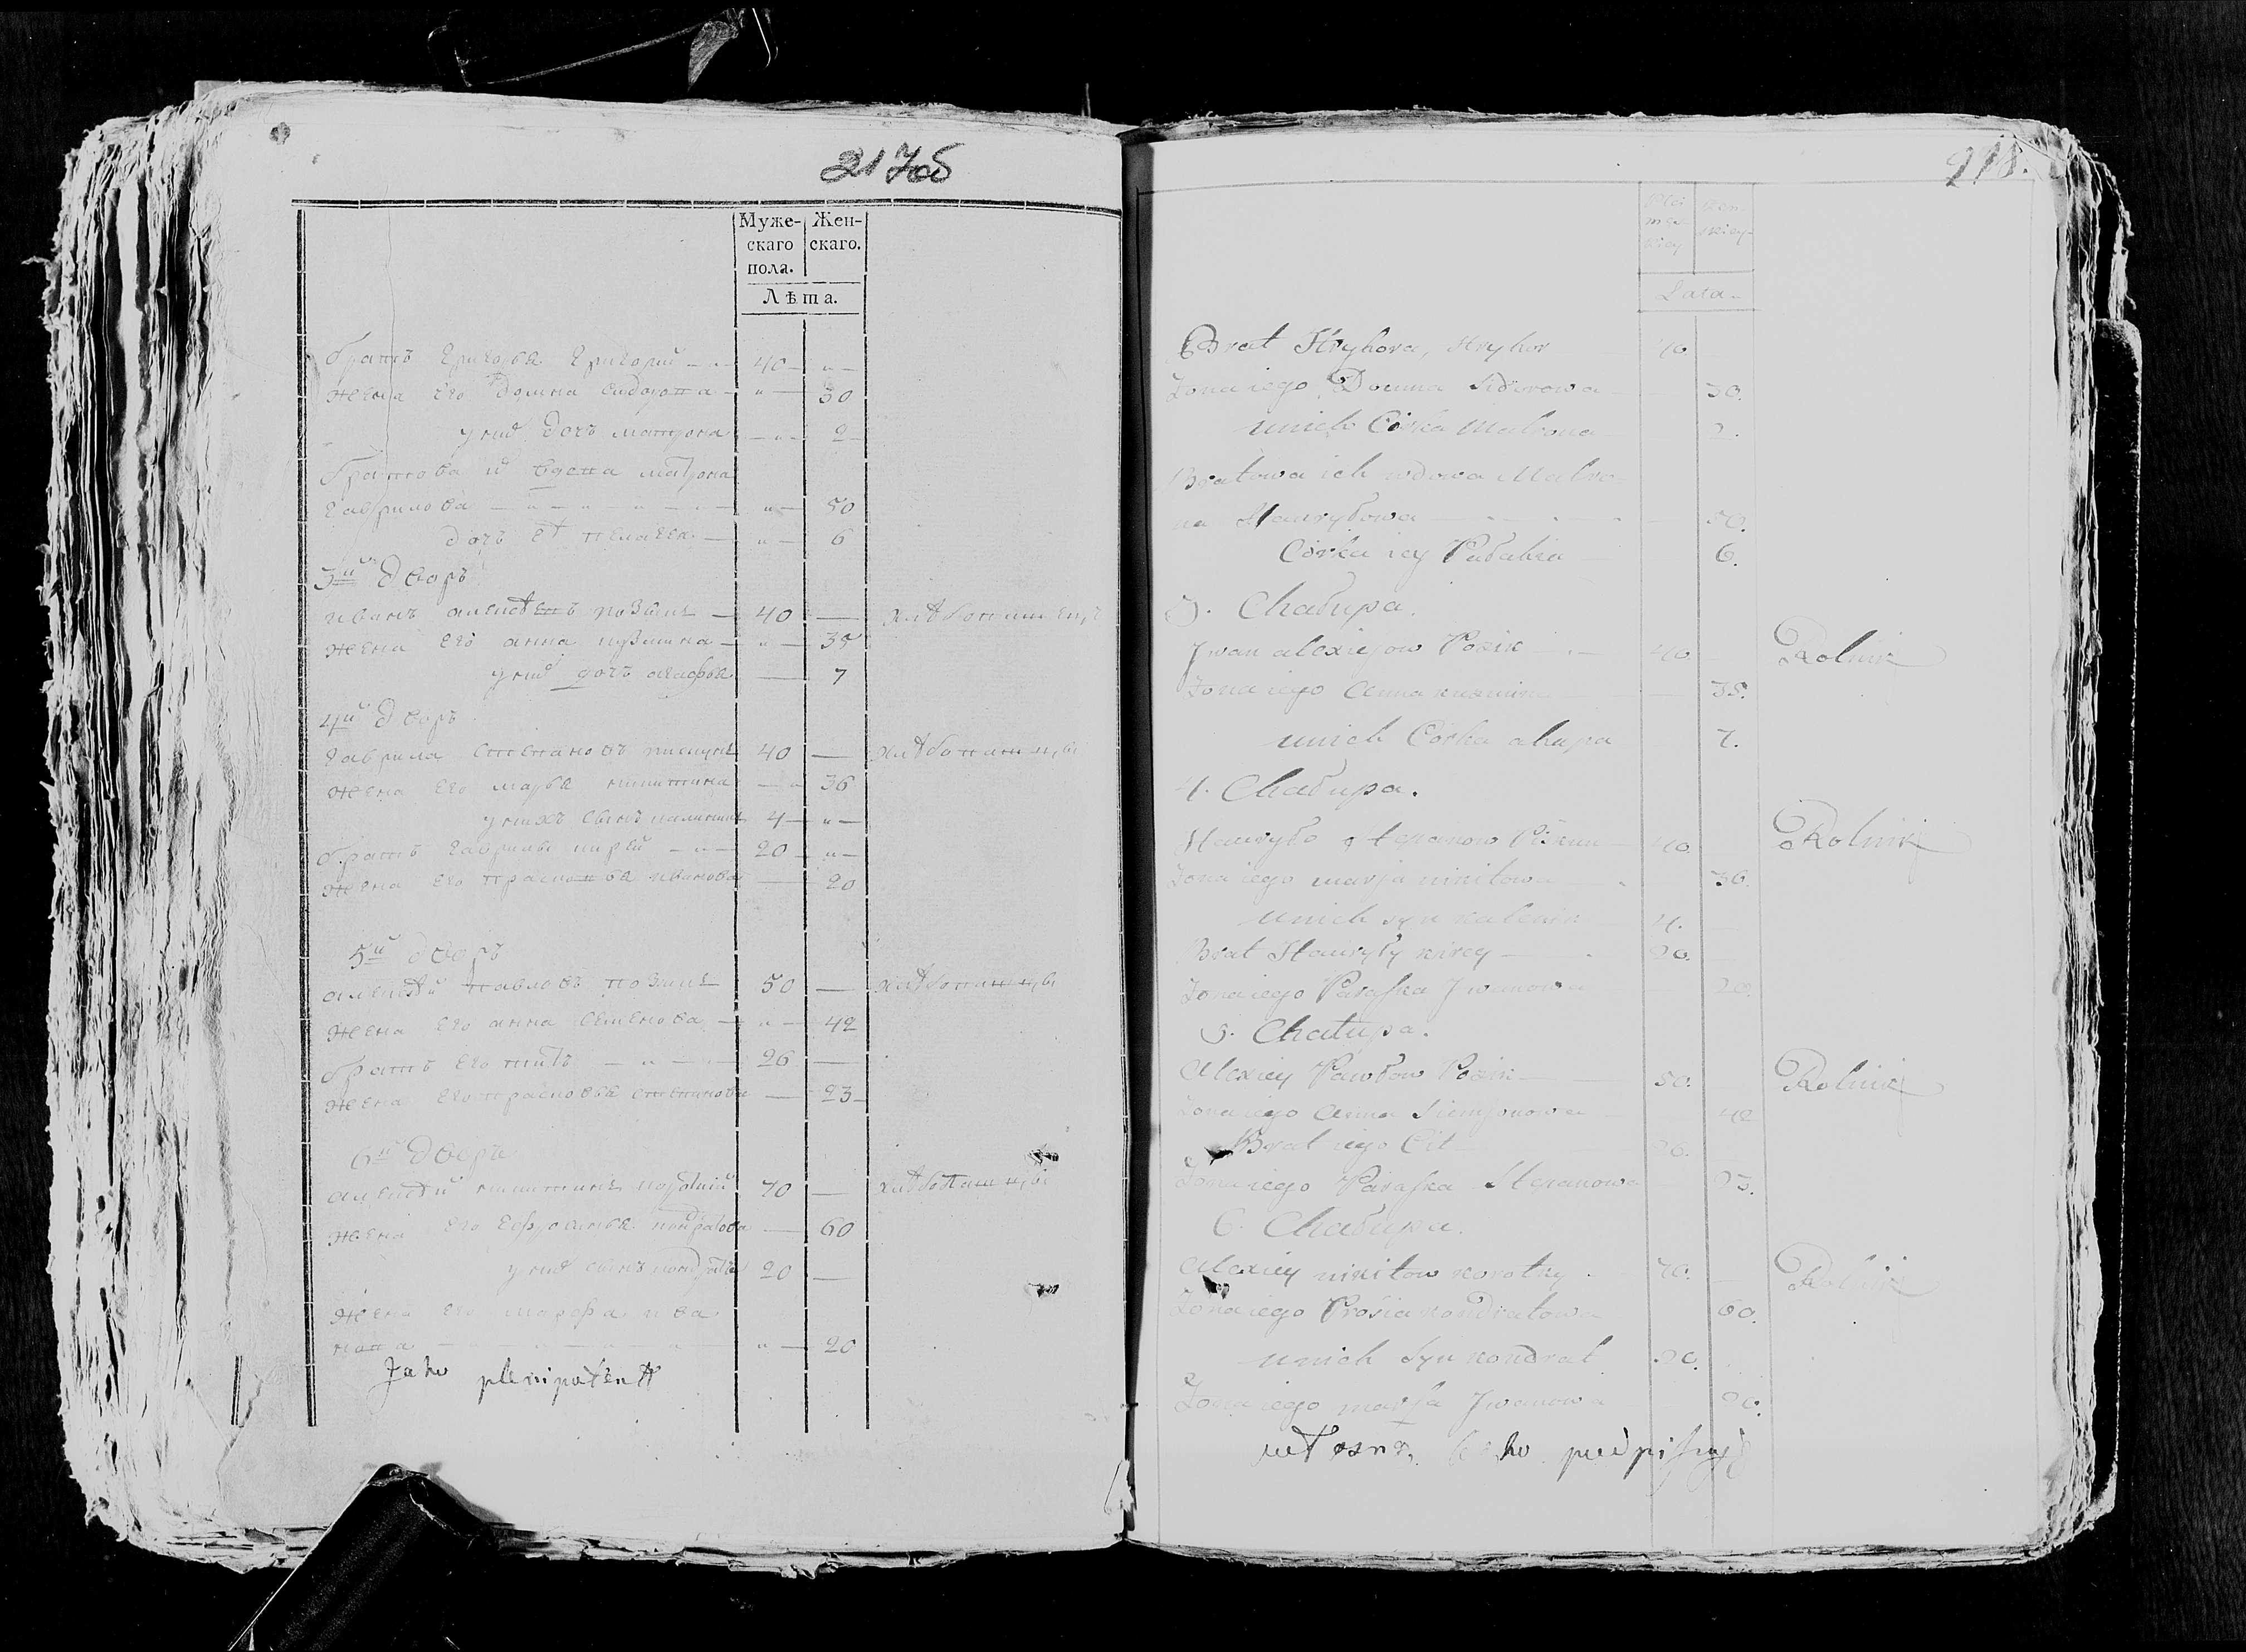 217об
Муже-
скаго
пола.
Жен-
скаго.
Лѣта.
братъ григорья григорий 40
жена его домна сидорова 30
у них дочь матрона 2
братова их вдова матрона
гаврилова 50
дочь её пелагея 6
3й дворъ
иванъ алексѣевъ 40 хлѣбопашецъ
жена его анна кузмина 35
у них дочь 7
4й дворъ
гаврила степановъ 40 хлѣбопашцы
жена его марья никитина 36
у нихъ сынъ 4
братъ гаврилы кирей 20
жена его прасковья иванова 20
5й дворъ
алексѣй павловъ позикъ 50 хлѣбопашцы
жена его анна семенова 42
братъ его титъ 26
жена его прасковья степанова 23
6й дворъ
алексѣй никитинъ 70 хлѣбопашцы
жена его кондратова 60
у них сынъ кондратъ 20
жена его марфа ива
нова 20
Jako plenipotent
218.
Lata
Brat Hryhora, Hryhor 40
Zona iego Domna Sidorowa 30.
unich Córka Matrona 2.
Bratowa ich wdowa Matro
na Hawryłowa 50.
Córka iey Pałahia 6.
3. Chałupa.
Jwan alexiejow Pozik 40 Rolnik
Zona iego Anna kuzmina 35.
unich Córka ahapa 7.
4. Chałupa.
Hawryło stepanow 40. Rolnik
Zona iego marja nikitow 36.
unich syn 4.
Brat Hawryły kirey 20.
Zona iego Paraska Jwanowa 20.
5. Chałupa.
Alexiey Pawłow Pozik 50. Rolnik
Zona iego Anna Siemionowa 42
Brat iego Cit 26.
Zona iego Paraska Stepanowa 23.
6. Chałupa.
Alexiey nikitow korotky 70. Rolnik
Zona iego Prosia kondratowa 60.
unich Syn kondrat 20.
Zona iego marfa Jwanowa 20.